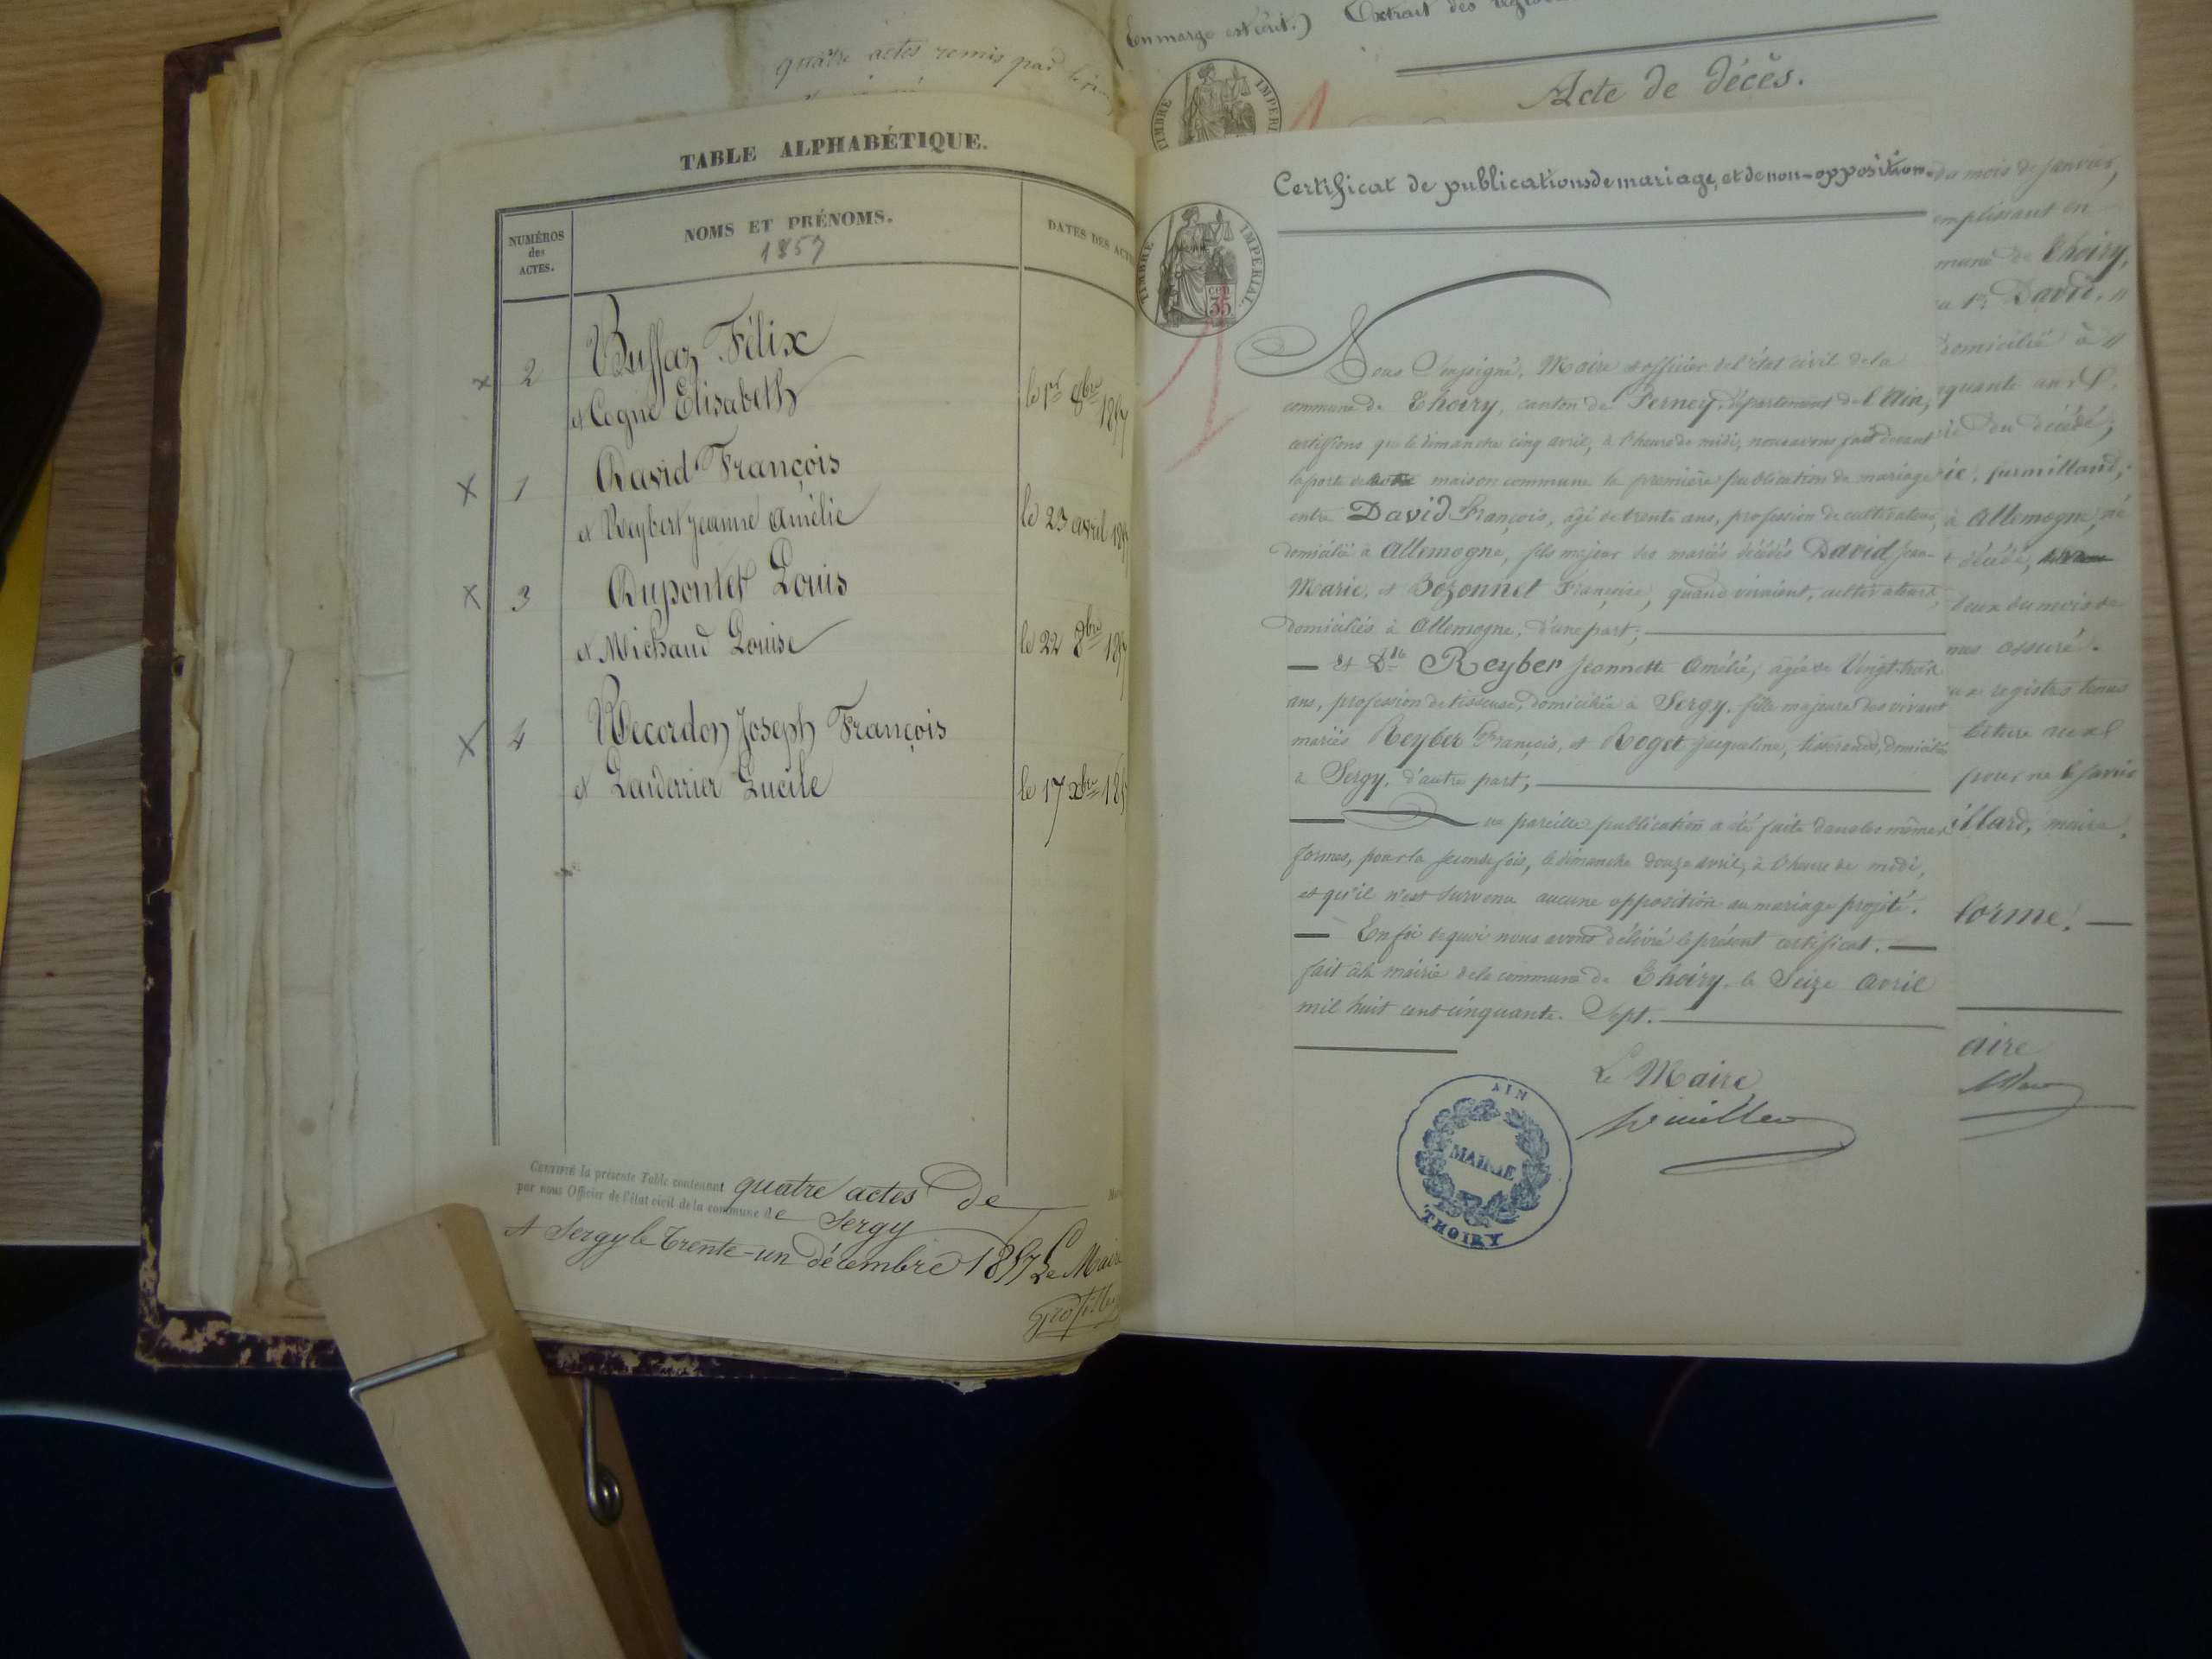 quatre actes remis par
TABLE ALPHABÉTIQUE.
NUMÉROS
des
ACTES.
NOMS ET PRÉNOMS.
1857
DATES DES ACTES
x 2 Buffaz Félix
et Cogne Elisabeth
le 1er 8bre 1857
x 1 David François
et Reybert Jeanne Amélie
le 23 avril 185
x 3 Dupontet Louis
et Michaud Louise
le 22 8bre 185
x 4 Recordon Joseph François
et Landerrier Lucile
le 17 xbre 185
Certifié la présente Table contenant quatre actes de
par nous Officier de l'état civil de la commune de Sergy
A Sergy le trente-un décembre 1857 Le Maire
(En marge est écrit.) Extrait des
Acte de décès.
TIMBRE IMPERIAL
Certificat de publications de mariage, et de non-opposition.
TIMBRE IMPERIAL.
35
Nous Soussigné, Maire et officier de l'état civil de la
commune de Thoiry, canton de Ferney, département de l'Ain,
certifions que le dimanche cinq avril, à l'heure de midi, nous avons fait devant
la porte de maison commune la première publication de mariage
entre David François, âgé de trente ans, profession de cultivateur,
domicilié à Allemogne, fils majeur des mariés décédés David Jean-
Marie, et Bozonnet Françoise, quand vivaient, cultivateurs,
domiciliés à Allemogne, d'une part;
— Et Dlle Reyber Jeannette Amélie, âgée de Vingt-trois
ans, profession de tisseuse, domiciliée à Sergy, fille majeure des vivant
mariés Reyber François, et Roget Jacqueline, tisserands, domiciliés
à Sergy, d'autre part,
pareille publication a été faite dans les mêmes
formes, pour la seconde fois, le dimanche douze avril, à l'heure de midi,
et qu'il n'est survenu aucune opposition au mariage projeté.
— En foi de quoi nous avons délivré le présent certificat. —
fait à la mairie de la commune de Thoiry le Seize Avril
mil huit cent cinquante. Sept.
Le Maire
AIN
MAIRIE
THOIRY
du mois de janvier,
emplissant en
mune de Thoiry,
David.
domicilié à
quante ans
du décédé,
à Allemogne, né
décédé,
deux du mois de
assuré.
registres tenus
lecture
illard, maire.
forme! —
aire